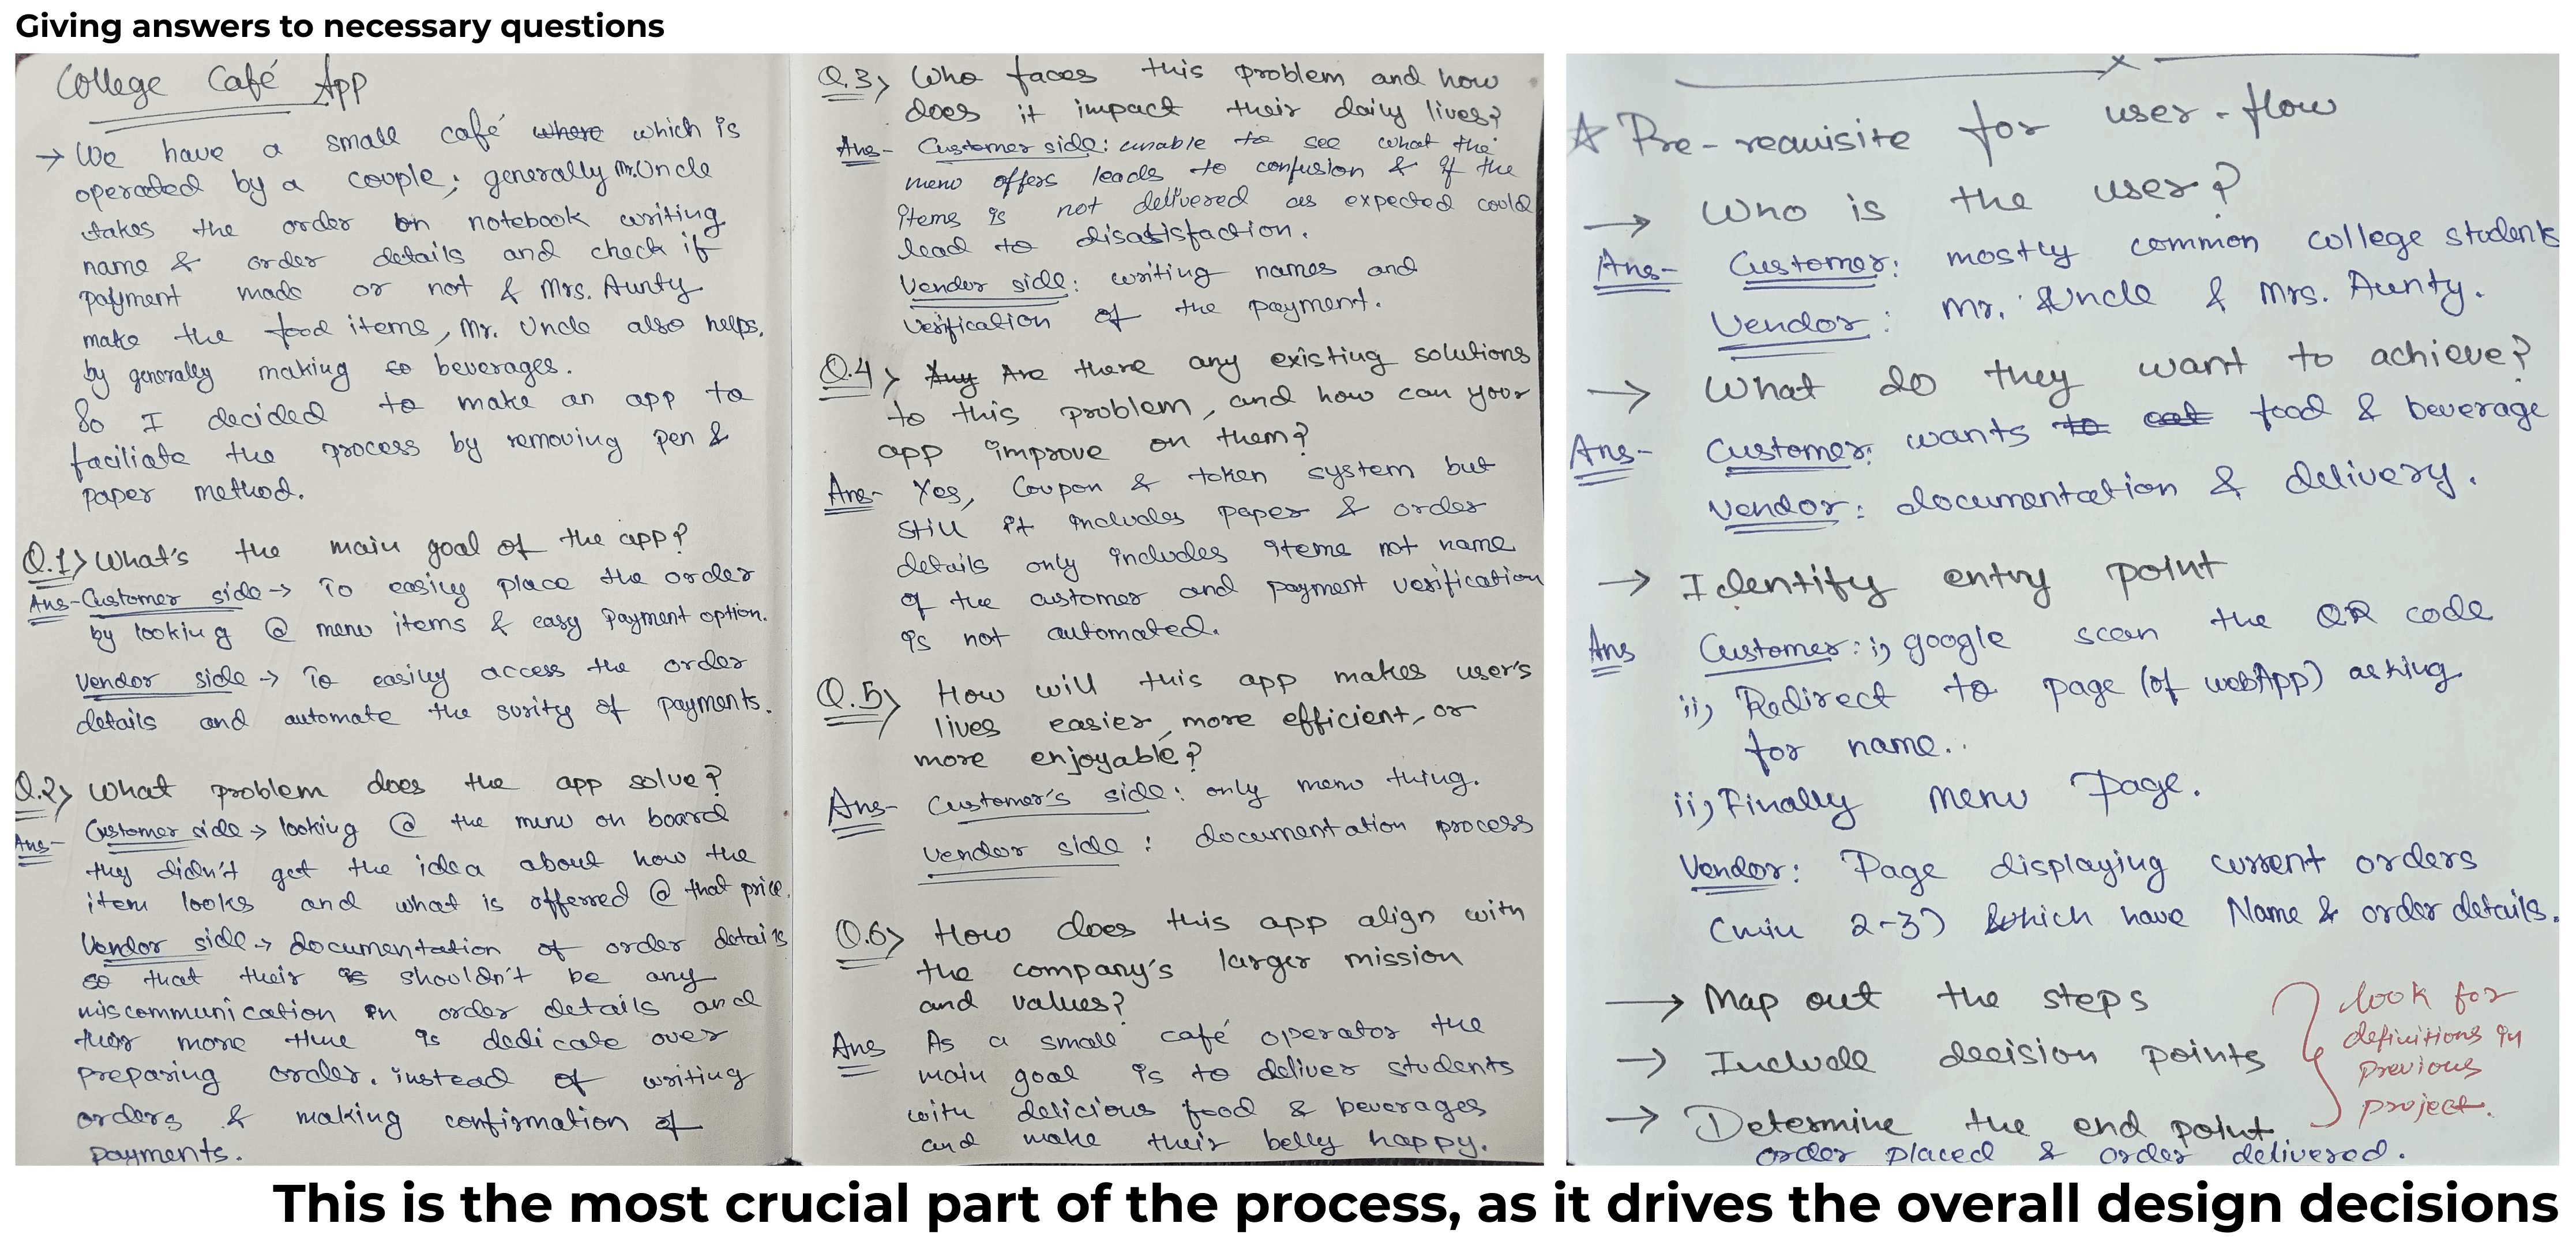 Giving answers to necessary questions
College Café App
→ We have a small café where which is
operated by a couple; generally Mr. Uncle
takes the order on notebook writing
name & order details and check if
payment made or not & Mrs. Aunty
make the food items, Mr. Uncle also helps.
by generally making so beverages.
So I decided to make an app to
faciliate the process by removing pen &
paper method.
Q.1> What's the main goal of the app?
Ans- Customer side → To easily place the order
by looking @ menu items & easy payment option.
Vendor side → To easily access the order
details and automate the surity of payments.
Q.2> What problem does the app solve?
Ans- Customer side → looking @ the menu on board
they didn't get the idea about how the
item looks and what is offerred @ that price.
Vendor side → documentation of order details
so that their is shouldn't be any
miscommunication in order details and
their more time is dedicate over
preparing order. instead of writing
orders & making confirmation of
payments.
Q.3> Who faces this problem and how
does it impact their daily lives?
Ans- Customer side: unable to see what the
menu offers leads to confusion & if the
items is not delivered as expected could
lead to disatisfaction.
Vendor side: writing names and
verification of the payment.
Q.4> Any Are there any existing solutions
to this problem, and how can your
app improve on them?
Ans- Yes, Coupon & token system but
still it includes paper & order
details only includes items not name
of the customer and payment verification
is not automated.
Q.5> How will this app makes user's
lives easier, more efficient, or
more enjoyable?
Ans- Customer's side: only menu thing.
vendor side: documentation process
Q.6> How does this app align with
the company's larger mission
and values?
Ans As a small café operator the
main goal is to deliver students
with delicious food & beverages
and make their belly happy.
☆ Pre-requisite for user-flow
→ Who is the user?
Ans- Customer: mostly common college students
Vendor: Mr. Uncle & Mrs. Aunty.
→ What do they want to achieve?
Ans- Customer: wants to eat food & beverage
Vendor: documentation & delivery.
→ Identify entry point
Ans Customer: i) google scan the QR code
ii) Redirect to page (of webApp) asking
for name..
ii) Finally menu Page.
Vendor: Page displaying current orders
(min 2-3) which have Name & order details.
→ Map out the steps
→ Include decision points
→ Determine the end point
order placed & order delivered.
look for
definitions in
previous
project.
This is the most crucial part of the process, as it drives the overall design decisions